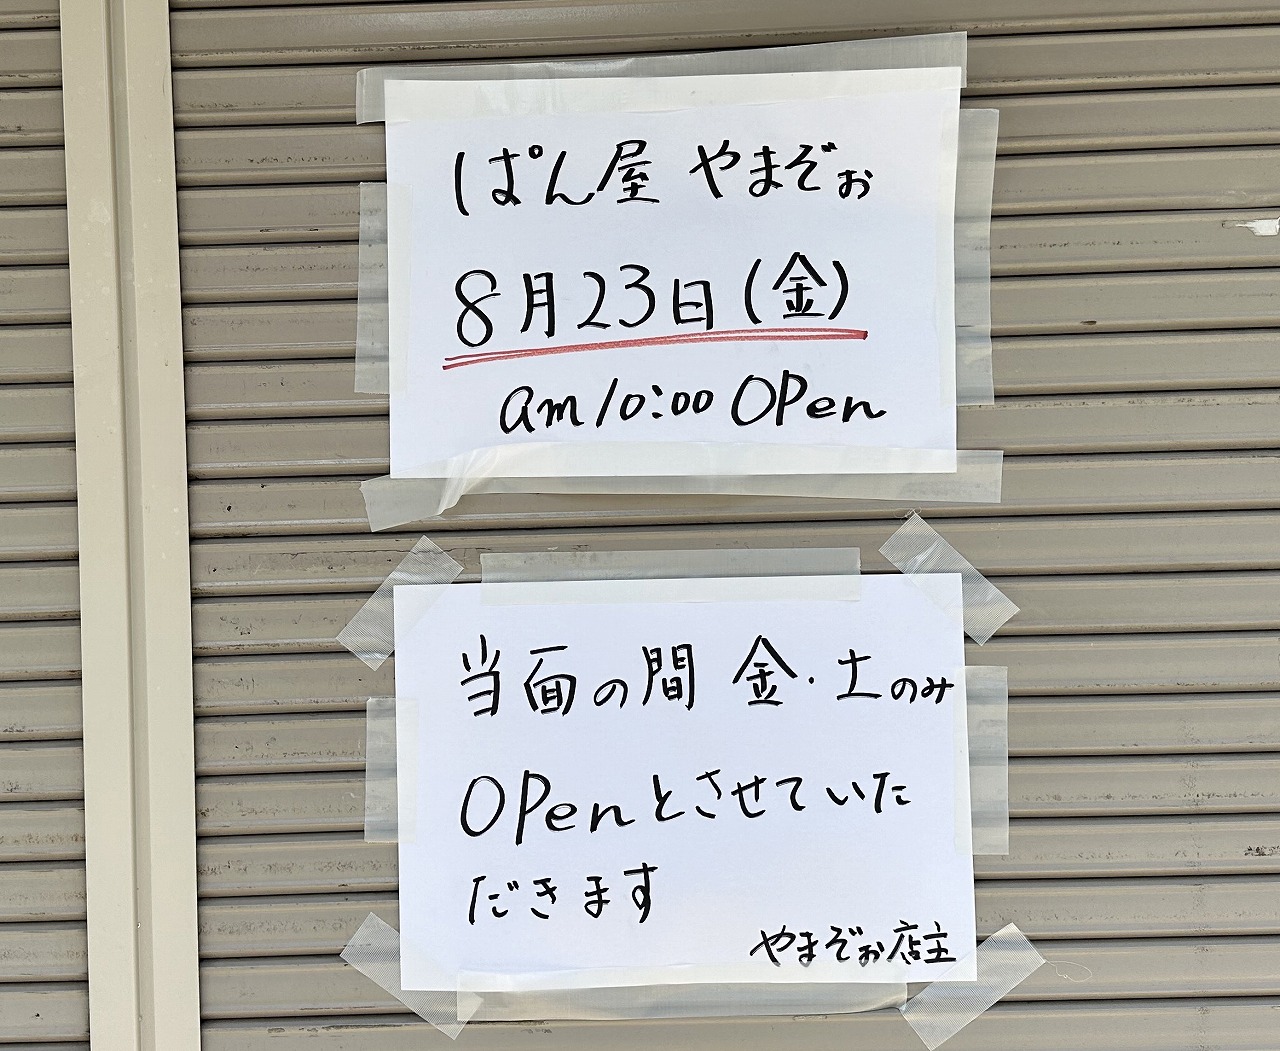 ぱん屋 やまぞぉ
8月23日(金)
am10:00 OPen
当面の間 金・土のみ
OPenとさせていた
だきます
やまぞぉ店主